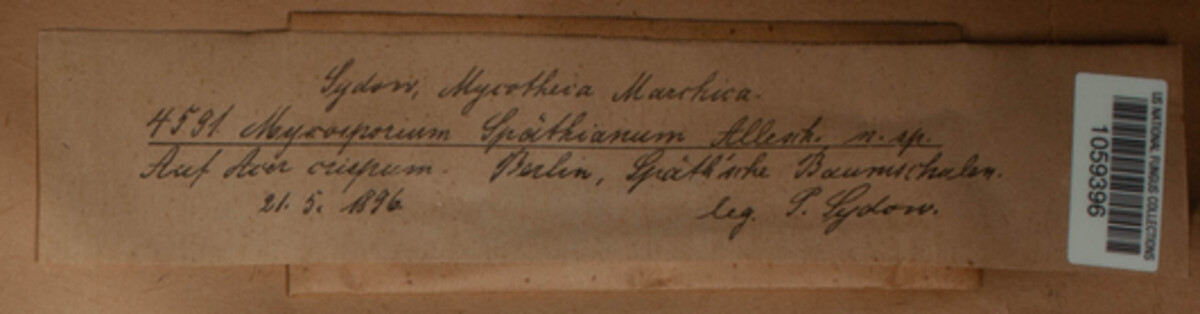 Sydow, Mycotheca Marchica.
4591. Myxosporium Späthianum Allesch. n. sp.
Auf Acer crispum. Berlin, Späth'sche Baumschulen.
21. 5. 1896 leg. P. Sydow.
US NATIONAL FUNGUS COLLECTIONS
1059396